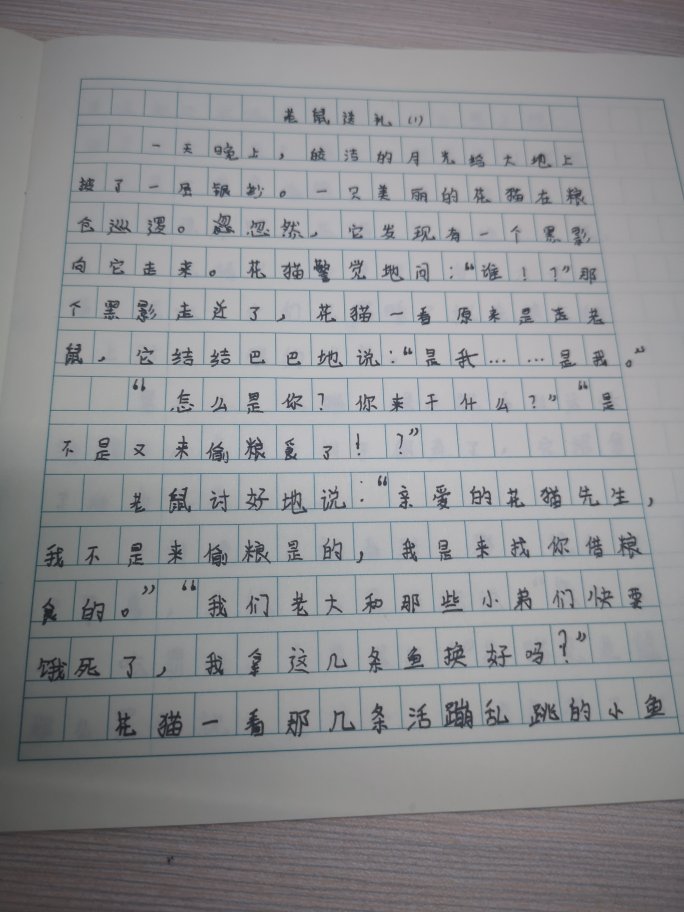 老鼠送礼(1)
一天晚上，皎洁的月光给大地上
披了一层银纱。一只美丽的花猫在粮
仓巡逻。忽忽然，它发现有一个黑影
向它走来。花猫警觉地问：“谁！？”那
个黑影走近了，花猫一看原来是走老
鼠，它结结巴巴地说：“是我……是我。”
“怎么是你？你来干什么？”“是
不是又来偷粮食了！？”
老鼠讨好地说：“亲爱的花猫先生，
我不是来偷粮是的，我是来找你借粮
食的。”“我们老大和那些小弟们快要
饿死了，我拿这几条鱼换好吗？”
花猫一看那几条活蹦乱跳的小鱼